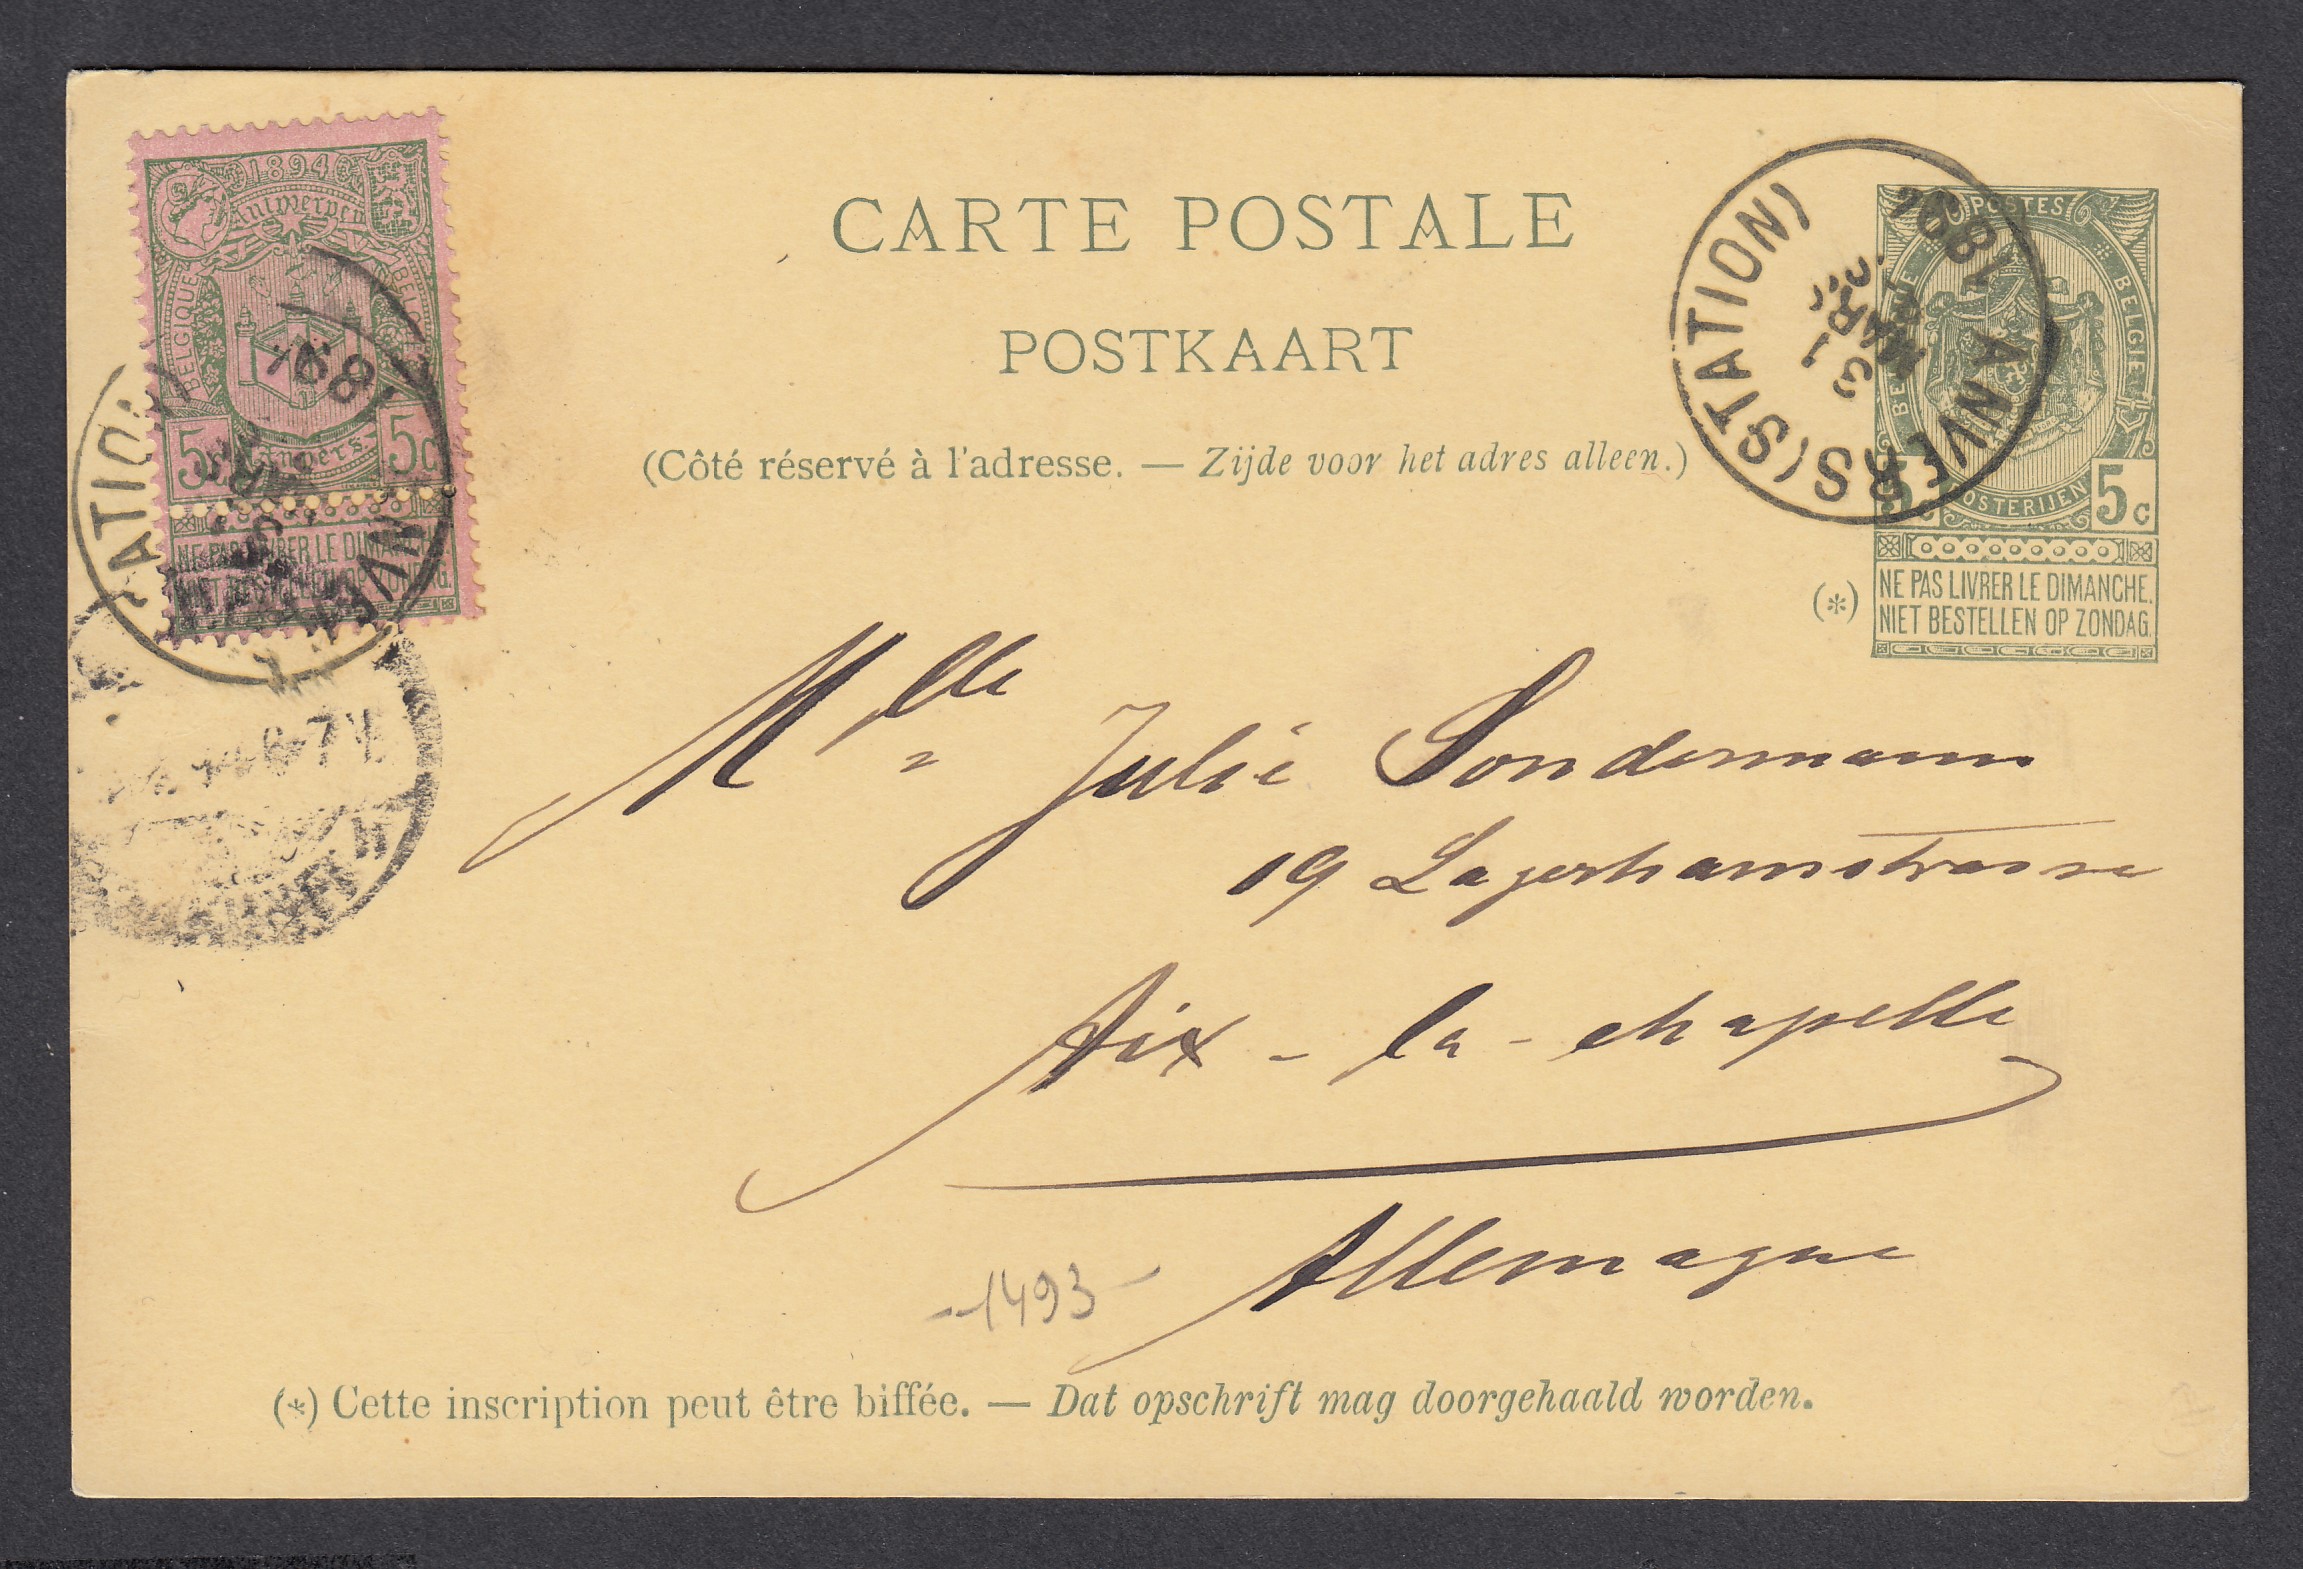 CARTE POSTALE
POSTKAART
(Côté réservé à l'adresse. — Zijde voor het adres alleen.)
1894
Antwerpen
BELGIQUE
BELGIË
5c Anvers. 5c
NE PAS LIVRER LE DIMANCHE.
NIET BESTELLEN OP ZONDAG.
ANVERS (STATION)
31
MARS
POSTES
BELGIE
POSTERIJEN
5c 5c
(*)
NE PAS LIVRER LE DIMANCHE.
NIET BESTELLEN OP ZONDAG.
Mlle Julie Sondermann
19
Aix-la-chapelle
Allemagne
-1493-
(*) Cette inscription peut être biffée. — Dat opschrift mag doorgehaald worden.